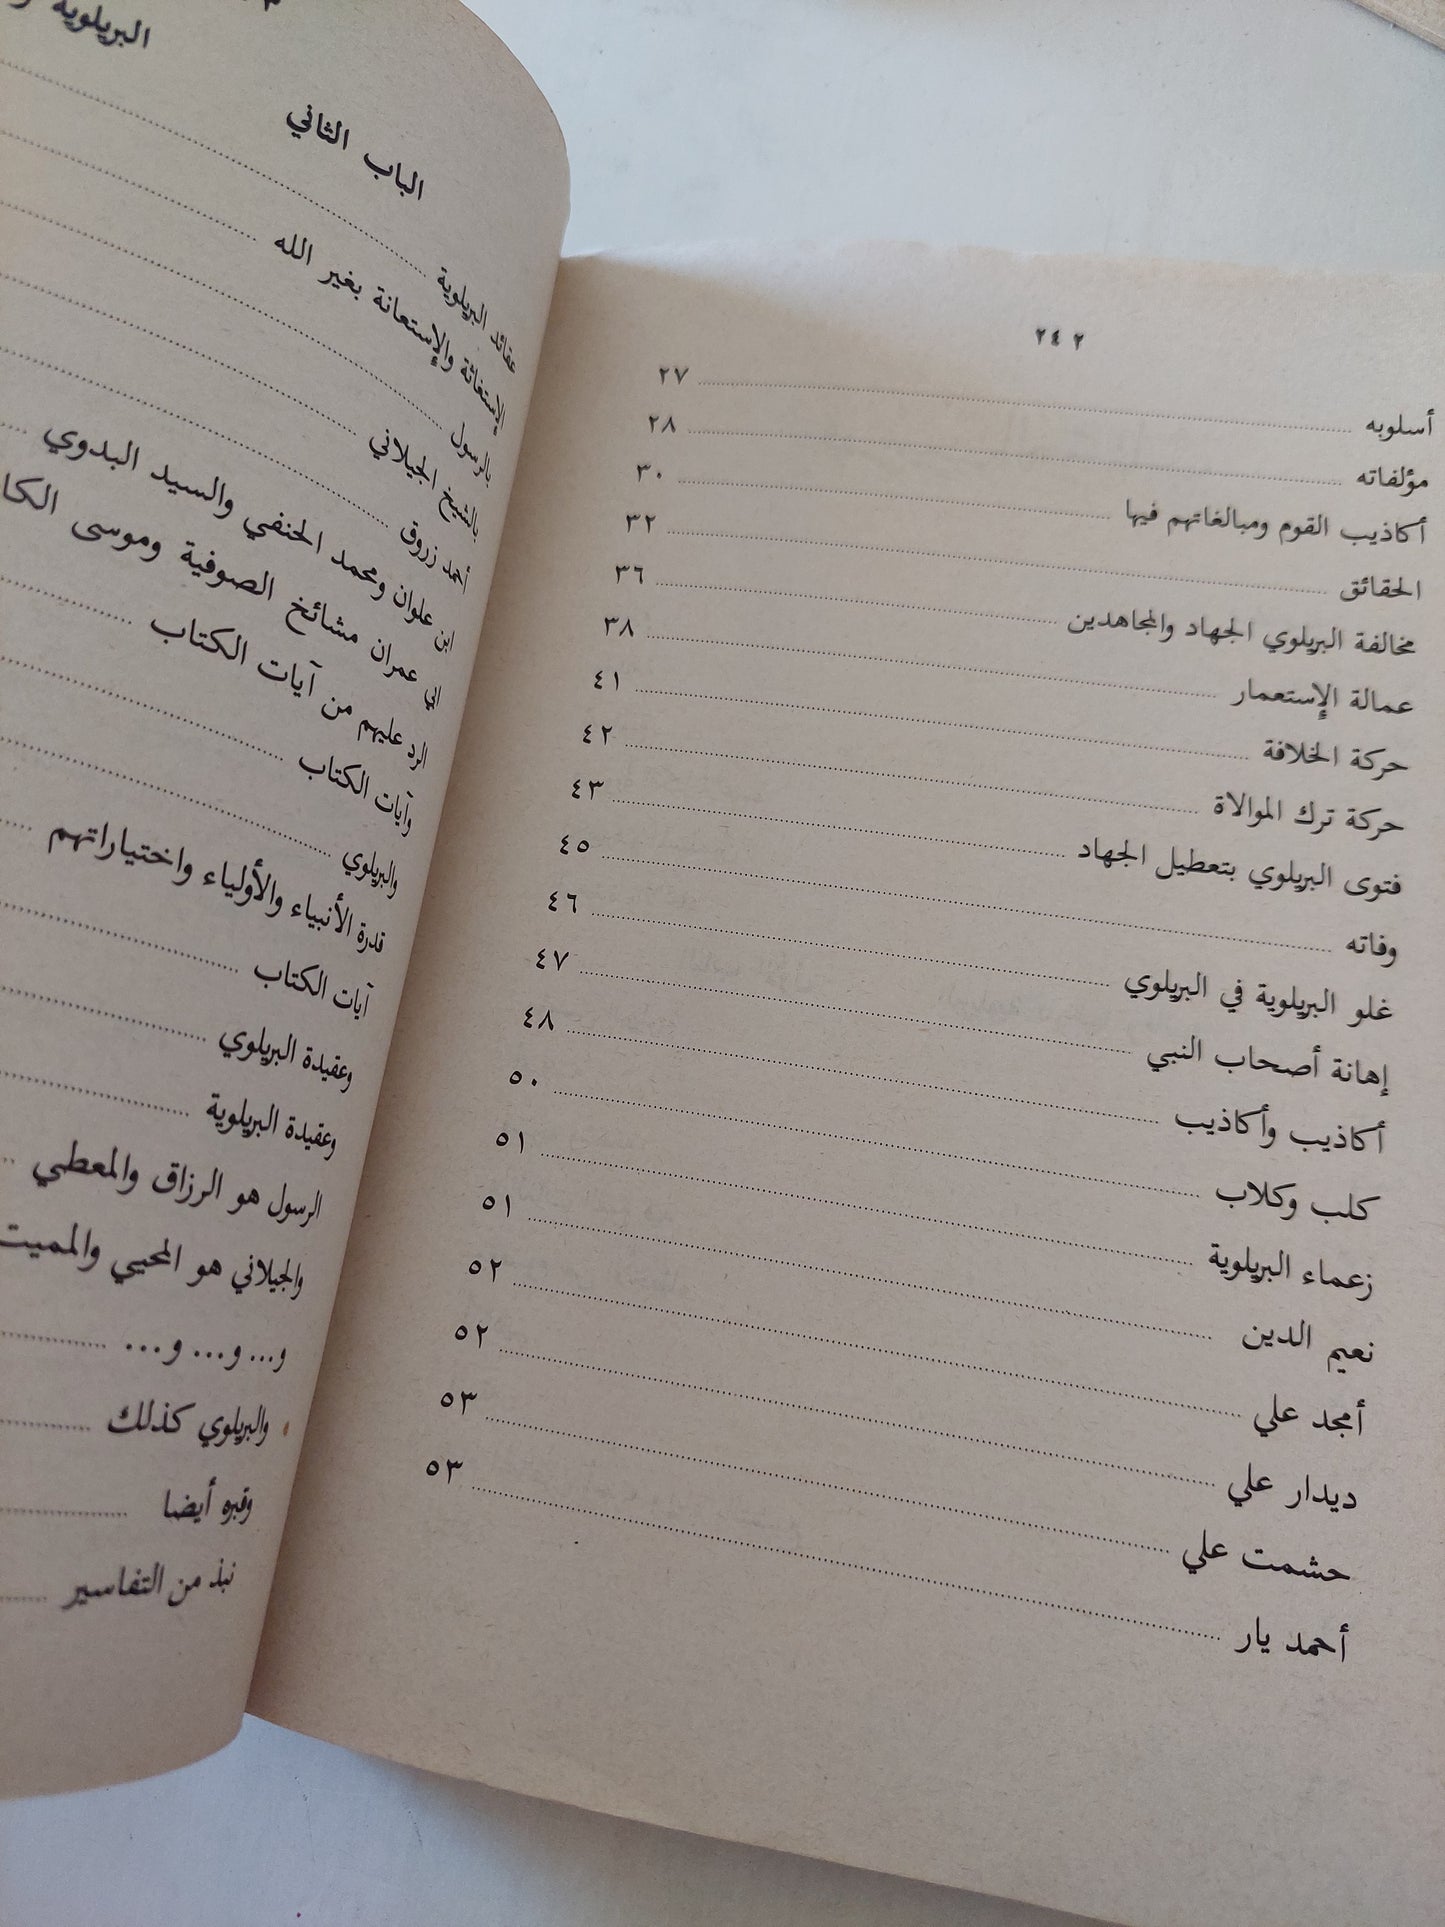 ٢٤٢
أسلوبه ........ ٢٧
مؤلفاته ........ ٢٨
أكاذيب القوم ومبالغاتهم فيها ........ ٣٠
الحقائق ........ ٣٢
مخالفة البريلوي الجهاد والمجاهدين ........ ٣٦
عمالة الإستعمار ........ ٣٨
حركة الخلافة ........ ٤١
حركة ترك الموالاة ........ ٤٢
فتوى البريلوي بتعطيل الجهاد ........ ٤٣
وفاته ........ ٤٥
غلو البريلوية في البريلوي ........ ٤٦
إهانة أصحاب النبي ........ ٤٧
أكاذيب وأكاذيب ........ ٤٨
كلب وكلاب ........ ٥٠
زعماء البريلوية ........ ٥١
نعيم الدين ........ ٥١
أمجد علي ........ ٥٢
ديدار علي ........ ٥٢
حشمت علي ........ ٥٣
أحمد يار ........ ٥٣
٣
البريلوية
الباب الثاني
عقائد البريلوية ........
الإستغاثة والإستعانة بغير الله ........
بالرسول ........
بالشيخ الجيلاني ........
أحمد زروق ........
ابن علوان ومحمد الحنفي والسيد البدوي ........
ابي عمران مشائخ الصوفية وموسى
الرد عليهم من آيات الكتاب ........
وآيات الكتاب ........
والبريلوي ........
قدرة الأنبياء والأولياء واختياراتهم ........
آيات الكتاب ........
وعقيدة البريلوي ........
وعقيدة البريلوية ........
الرسول هو الرزاق والمعطي ........
والجيلاني هو المحيي والمميت
و... و... و... ........
والبريلوي كذلك ........
وقبره أيضا ........
نبذ من التفاسير ........